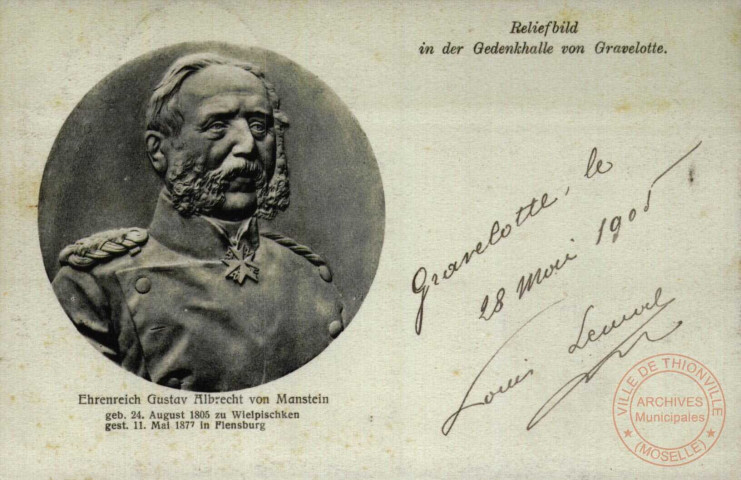 Reliefbild
in der Gedenkhalle von Gravelotte.
Gravelotte, le
28 Mai 1905
Louis
Ehrenreich Gustav Albrecht von Manstein
geb. 24. August 1805 zu Wielpischken
gest. 11. Mai 1877 in Flensburg
VILLE DE THIONVILLE
ARCHIVES
Municipales
(MOSELLE)